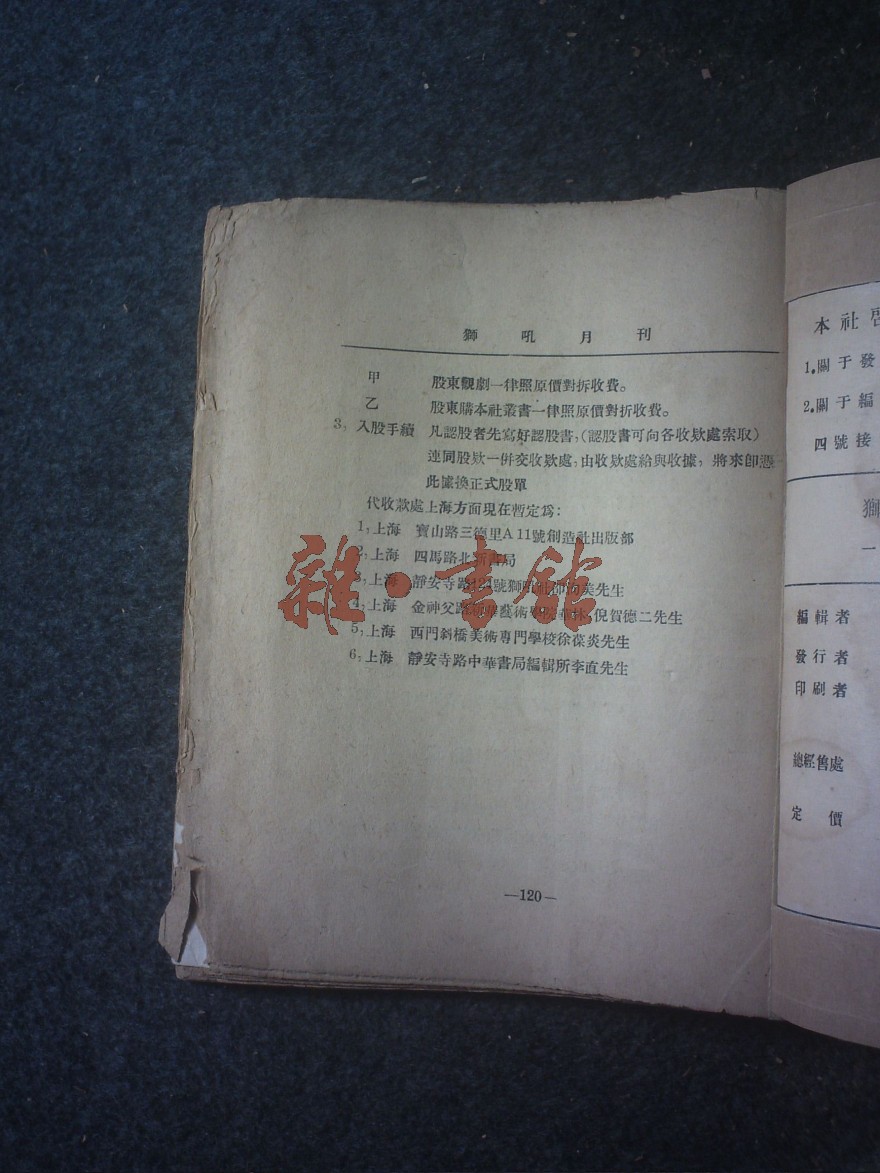 獅吼月刊
甲 股東觀劇一律照原價對折收費。
乙 股東購本社叢書一律照原價對折收費。
3, 入股手續 凡認股者先寫好認股書,(認股書可向各收欵處索取)
連同股欵一併交收欵處,由收欵處給與收據,將來卽憑
此據換正式股單
代收款處上海方面現在暫定爲:
1,上海 寶山路三德里A11號創造社出版部
2,上海 四馬路北新書局
3,上海 靜安寺路 號獅吼社 美先生
4,上海 金神父路 藝術 林,倪賀德二先生
5,上海 西門斜橋美術專門學校徐葆炎先生
6,上海 靜安寺路中華書局編輯所李直先生
—120—
雜·書館
本社啓
1.關于發
2.關于編
四號接
獅
一
編輯者
發行者
印刷者
總經售處
定價